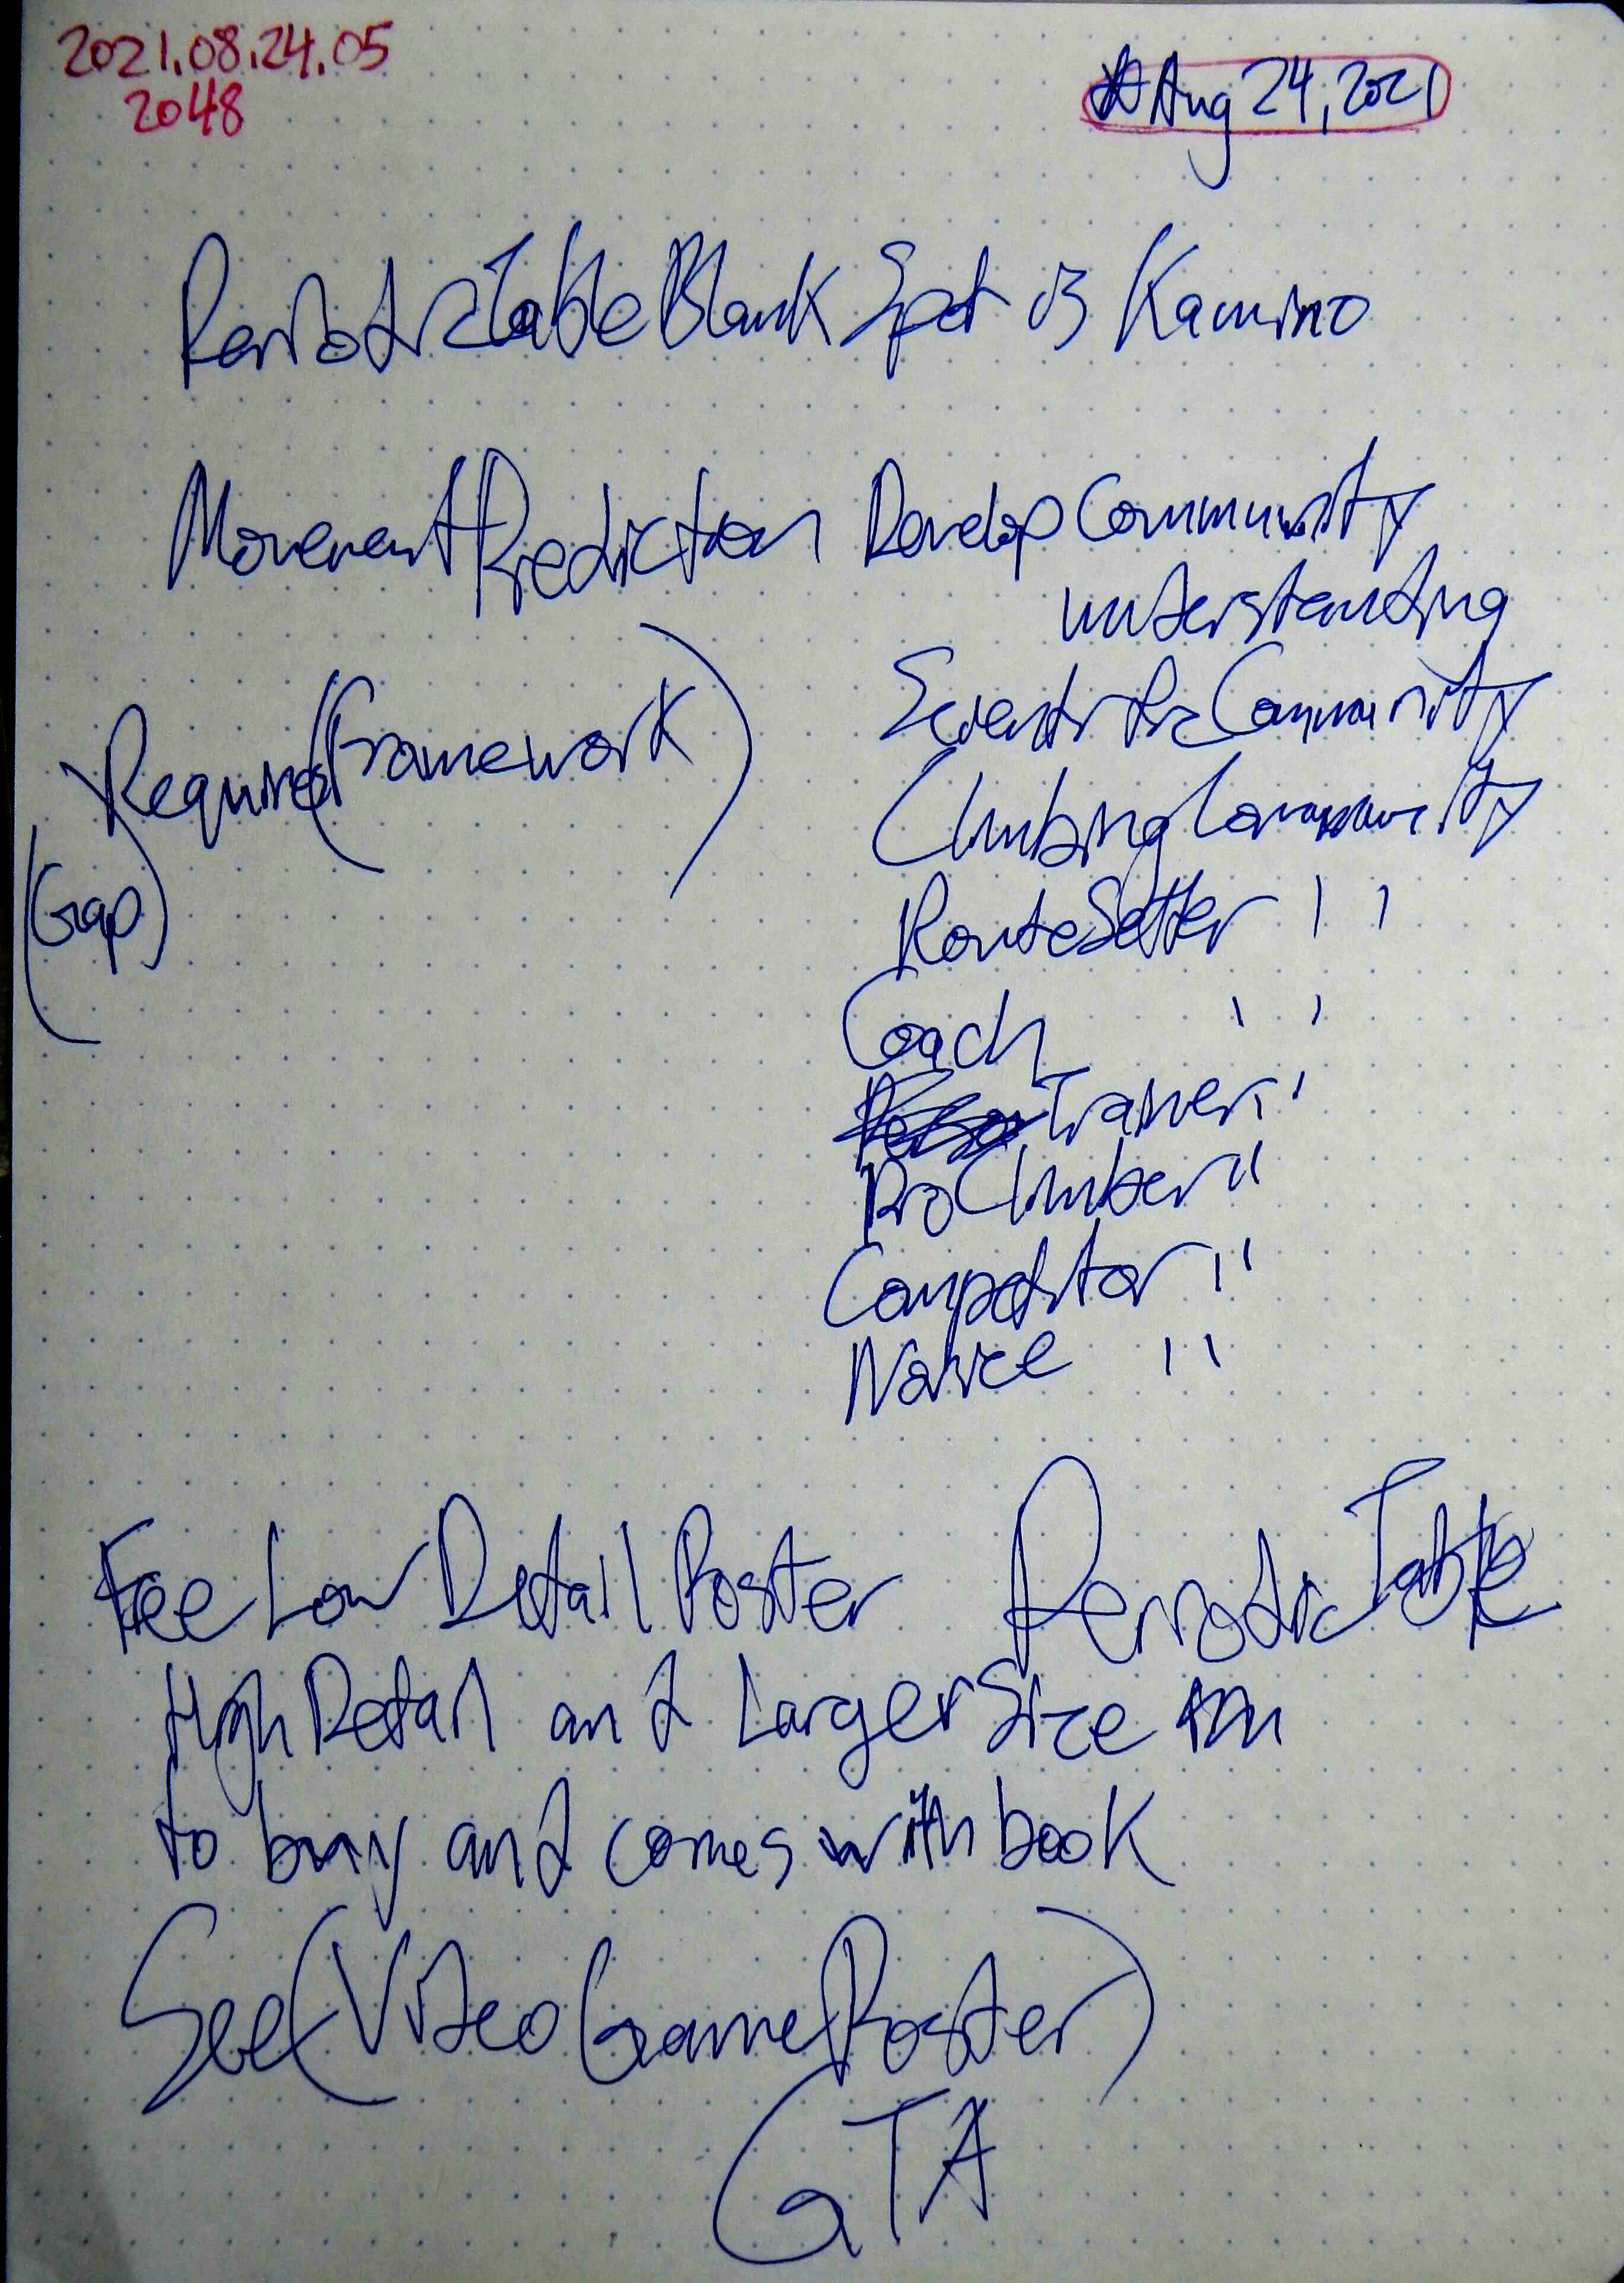 2021.08.24.05
2048
Aug 24, 2021
Periodic Table Blank Spot is Kamino
Movement Prediction
Develop Community
understanding
Scientific Community
Climbing Community
Route Setter ''
Coach ''
Trainer ''
Pro Climber ''
Competitor ''
Novice ''
Require (Framework)
(Gap)
Free Low Detail Poster Periodic Table
High Detail and Larger Size
to buy and comes with book
See (Video Game Poster)
GTA